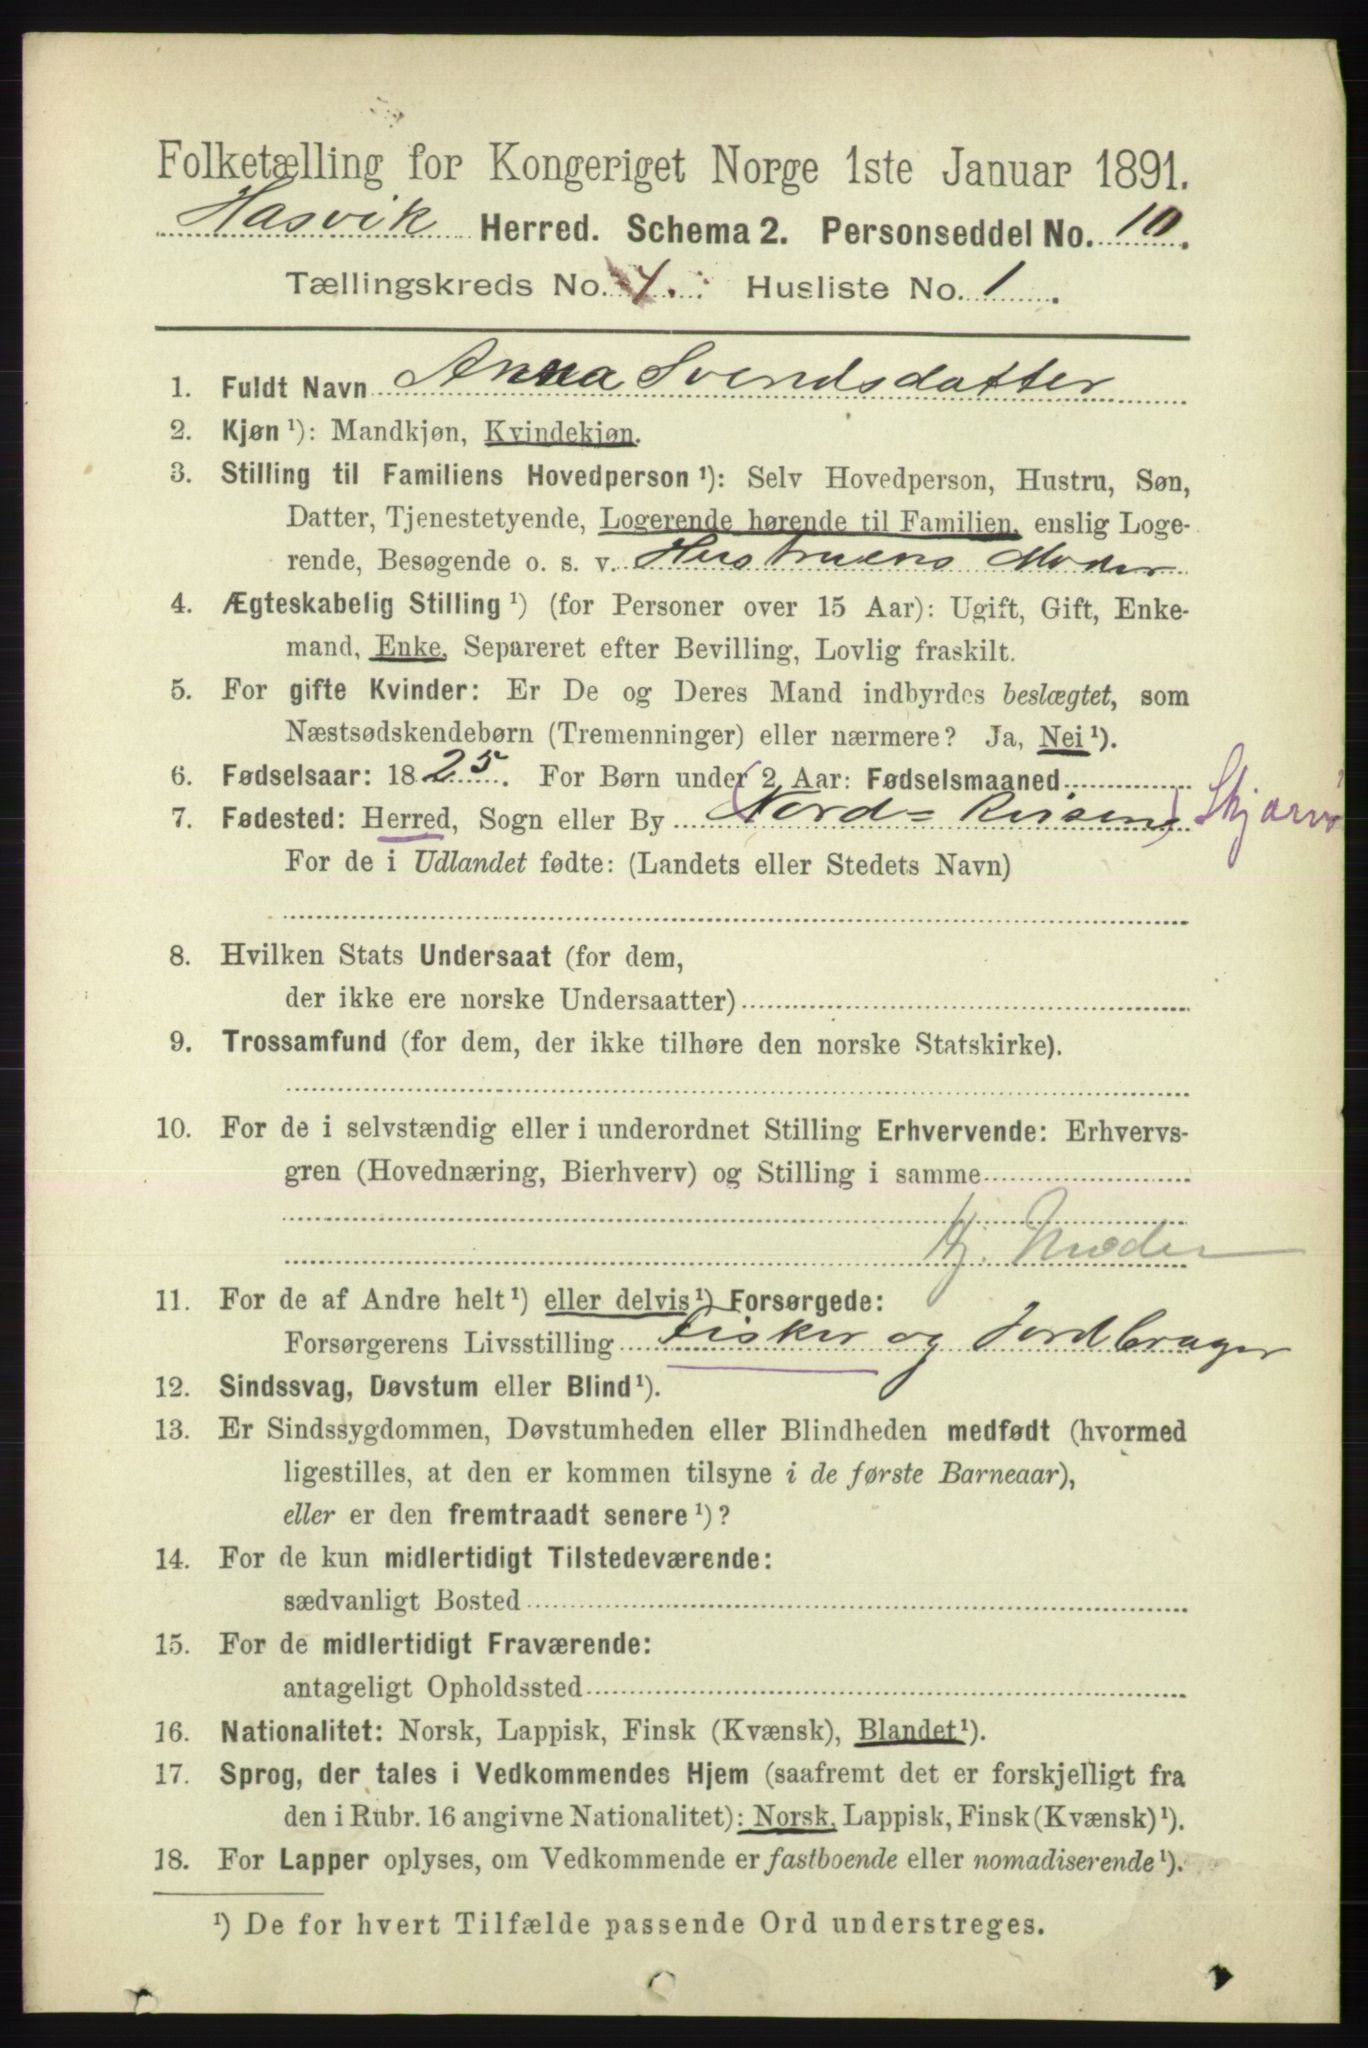 Folketælling for Kongeriget Norge 1ste Januar 1891.
Hasvik Herred. Schema 2. Personseddel No. 10.
Tællingskreds No. 4. Husliste No. 1.
1. Fuldt Navn Anna Svendsdatter
2. Kjøn ¹): Mandkjøn, Kvindekjøn.
3. Stilling til Familiens Hovedperson ¹): Selv Hovedperson, Hustru, Søn,
Datter, Tjenestetyende, Logerende hørende til Familien, enslig Loge-
rende, Besøgende o. s. v. Hustruens Moder
4. Ægteskabelig Stilling ¹) (for Personer over 15 Aar): Ugift, Gift, Enke-
mand, Enke, Separeret efter Bevilling, Lovlig fraskilt.
5. For gifte Kvinder: Er De og Deres Mand indbyrdes beslægtet, som
Næstsødskendebørn (Tremenninger) eller nærmere? Ja, Nei ¹).
6. Fødselsaar: 1825. For Børn under 2 Aar: Fødselsmaaned
7. Fødested: Herred, Sogn eller By (Nord-Reisen) Skjærvø
For de i Udlandet fødte: (Landets eller Stedets Navn)
8. Hvilken Stats Undersaat (for dem,
der ikke ere norske Undersaatter)
9. Trossamfund (for dem, der ikke tilhøre den norske Statskirke).
10. For de i selvstændig eller i underordnet Stilling Erhvervende: Erhvervs-
gren (Hovednæring, Bierhverv) og Stilling i samme
Hj. Moder
11. For de af Andre helt ¹) eller delvis ¹) Forsørgede:
Forsørgerens Livsstilling Fisker og Jordbruger
12. Sindssvag, Døvstum eller Blind ¹).
13. Er Sindssygdommen, Døvstumheden eller Blindheden medfødt (hvormed
ligestilles, at den er kommen tilsyne i de første Barneaar),
eller er den fremtraadt senere ¹)?
14. For de kun midlertidigt Tilstedeværende:
sædvanligt Bosted
15. For de midlertidigt Fraværende:
antageligt Opholdssted
16. Nationalitet: Norsk, Lappisk, Finsk (Kvænsk), Blandet ¹).
17. Sprog, der tales i Vedkommendes Hjem (saafremt det er forskjelligt fra
den i Rubr. 16 angivne Nationalitet): Norsk, Lappisk, Finsk (Kvænsk) ¹).
18. For Lapper oplyses, om Vedkommende er fastboende eller nomadiserende ¹).
¹) De for hvert Tilfælde passende Ord understreges.